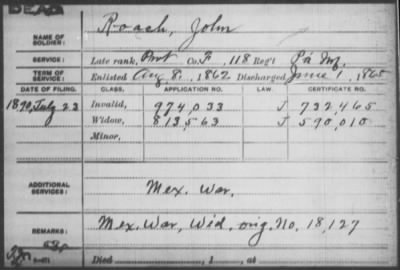 DEAD
NAME OF SOLDIER: Roach, John
SERVICE: Late rank, Pvt Co. F, 118 Reg't Pa Inf.
TERM OF SERVICE: Enlisted Aug 8, 1862 Discharged June 1, 1865
DATE OF FILING. CLASS. APPLICATION NO. LAW. CERTIFICATE NO.
1890, July 23 Invalid, 974,033 J 732,465
Widow, 813,563 J 590,010
Minor,
ADDITIONAL SERVICES: Mex. War.
REMARKS: Mex. War, Wid. orig. No. 18,127
Died , 1 , at